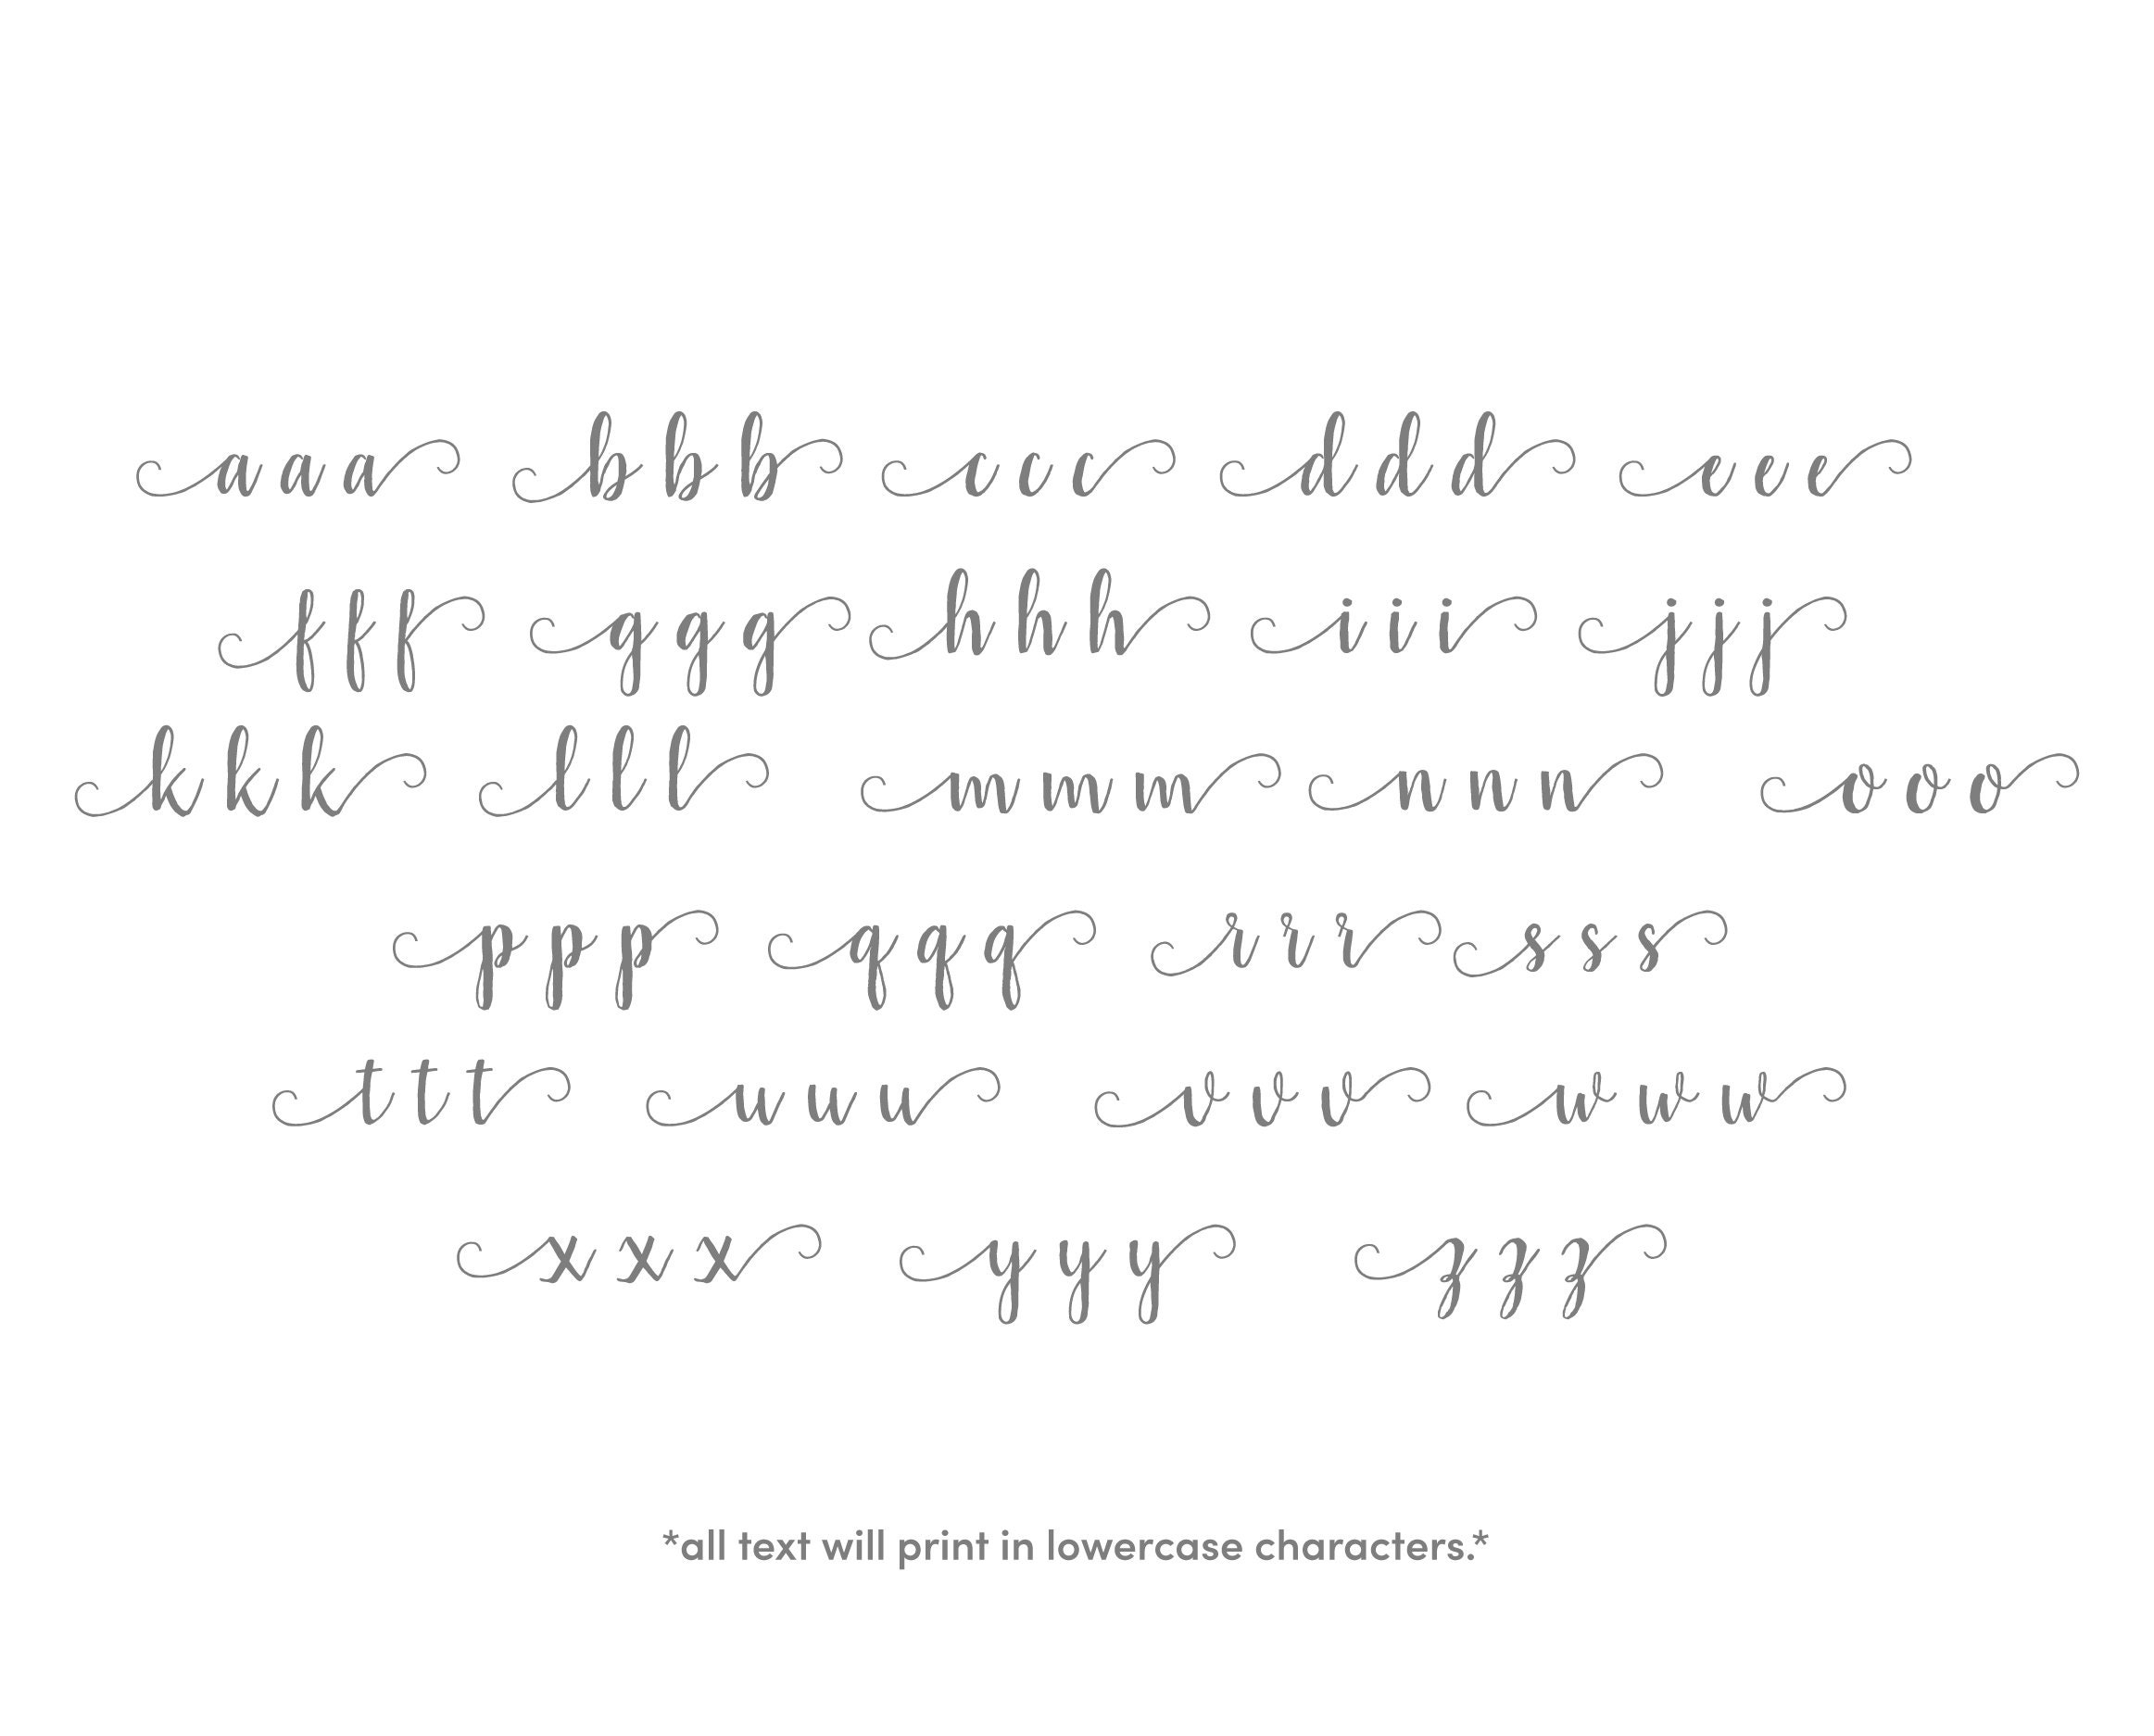 aaa bbb ccc ddd eee
fff ggg hhh iii jjj
kkk lll mmm nnn ooo
ppp qqq rrr sss
ttt uuu vvv www
xxx yyy zzz
*all text will print in lowercase characters.*